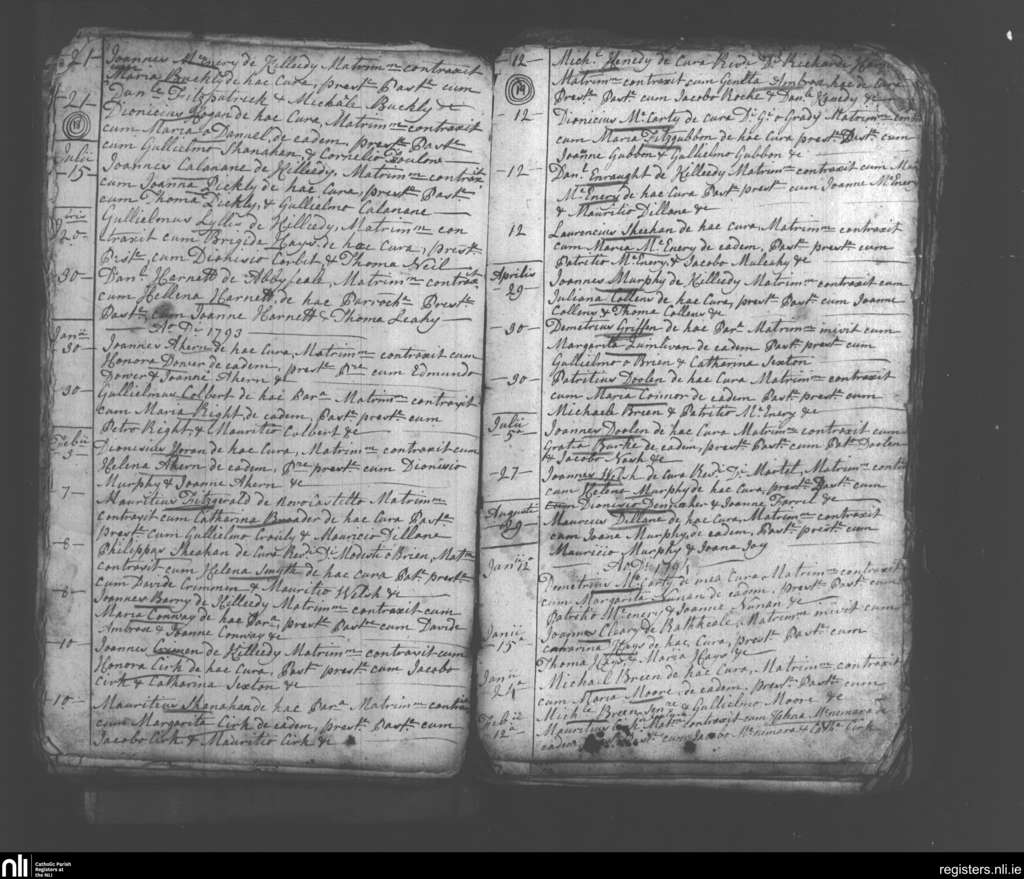 21 Joannes McEnery de Killeedy Matrimm contraxit
cum
Maria Buckly de hac Cura, prest. Past. cum
Danle Fitzpatrick & Michále Buckly &c
21 Dionicius Hogan de hac Cura, Matrimm contraxit
cum Maria a Danuel, de eadem, prest. Past.
cum Gullielmo Shanahan, & Cornelio
Julii
15 Joannes Calanane de Killeedy, Matrimm contraxit
cum Joanna Lickly de hac Cura, prest. Past.
cum Thoma Lickly, & Gullielmo Calanane
9bris
20 Gullielmus Lyllis de Killeedy, Matrimm con
traxit cum Brigide Hays, de hac Cura, prest.
Past. cum Dionisio Corbet & Thoma Neil
30 Danl Harnett de Abbyfeale, Matrimm contraxit
cum Hellena Harnett, de hac Parrocha Prest.
Past. cum Joanne Harnett & Thoma Leahy
Ao Di 1793
Janii
30 Joannes Ahern de hac Cura, Matrimm contraxit cum
Honora Dower de eadem, prest. Pre cum Edmundo
Dower & Joanne Ahern &c
30 Gullielmus Colbert de hac Para Matrimm contraxit
cum Maria Right, de eadem, Past. prest. cum
Petro Right, & Mauritio Colbert &c
Febii
5 Dionisius Horan de hac Cura, Matrimm contraxit cum
Helena Ahern de eadem, Pre prest. cum Dionisio
Murphy & Joanne Ahern &c
7 Mauritius Fitzgerald de Novo Castello Matrimm
contraxit cum Catharina Broader de hac Cura Past.
prest. cum Gullielmo Crouly & Mauricio Dillane
8 Philippus Sheahan de Cura Revd Di Modesti o Brien, Matm
contraxit cum Helena Smyth de hac cura Pat. prest.
cum Davide Crimmen & Mauritio Welch &c
8 Joannes Barry de Killeedy Matrimm contraxit cum
Maria Conway de hac Para, prest. Past. cum Davide
Ambros & Joanne Conway &c
10 Joannes Crimen de Killeedy Matrimm contraxit cum
Honora Cirk de hac Cura, Past. prest. cum Jacobo
Cirk & Catharina Sexton &c
10 Mauritius Shanahan de hac Para Matrimm contraxit
cum Margarita Cirk de eadem, prest. Past. cum
Jacobo Cirk & Mauritio Cirk &c
12 Michl Henedy de Cura Revd Di Richardi
Matrimm contraxit cum Ambros hac de Cura
Prest. Past. cum Jacobo Roche & Danle Henedy &c
14
12 Dionicius McCarty de cura Di Gi o Grady Matrimm cont
cum Maria Fitzgubbon de hac Cura prest. Past. cum
Joanne Gubbon & Gullielmo Gubbon &c
12 Danl Enraught de Killeedy Matrimm contraxit cum Ma
McEnery de hac Cura Past. prest. cum Joanne McEnery
& Mauritio Dillane &c
12 Laurencius Sheehan de hac Cura Matrimm contraxit
cum Maria McEnery de eadem, Past. prest. cum
Patritio McEnery, & Jacobo Mulcahy &c
Aprilis
29 Joannes Murphy de Killeedy Matrimm contraxit cum
Juliana Collens de hac Cura, prest. Past. cum Joanne
Collens & Thoma Collens &c
30 Demetrius Griffen de hac Para Matrimm inivit cum
Margarita Zumlivan de eadem Past. prest. cum
Gullielmo o Brien & Catharina Sexton
30 Patritius Doolen de hac Cura Matrimm contraxit
cum Maria Connor de eadem Past. prest. cum
Michaele Breen & Patritio McEnery &c
Julii
5a Joannes Doolen de hac Cura Matrimm contraxit cum
Gratia Burke de eadem, prest. Past. cum Pat. Doolen
& Jacobo Nash &c
27 Joannes Welsh de Cura Revdi Di Martel, Matrimm contr
cum Helena Murphy de hac Cura, prest. Past. cum
cum Dionisio & Joanne Farrel &c
Augusti
29 Mauricus Dillane de hac Cura Matrimm contraxit
cum Joane Murphy, de eadem, Past. prest. cum
Mauricio Murphy & Joana Joy
Ao Di 1794
Janii 12a Demetrius McCarty de mea Cura Matrimm contraxit
cum Margarita Nunan de eadem, prest. Past. cum
Patritio McEnery & Joanne Nunan &c
Janii
15a Joannes Cleary de Rathkeale, Matrimm inivit cum
Catharina Hays de hac Cura, prest. Past. cum
Thoma Hays & Maria Hays &c
Janii
21a Michael Breen de hac Cura, Matrimm contraxit
cum Maria Moore, de eadem, prest. Past. cum
Michle Breen Senre & Gullielmo Moore &c
Febii
12a Mauritius Cirk contraxit cum Mcnemara de
eadem cum Jacobo Mcnemara & Cirk
nli Catholic Parish
Registers at
the NLI
registers.nli.ie